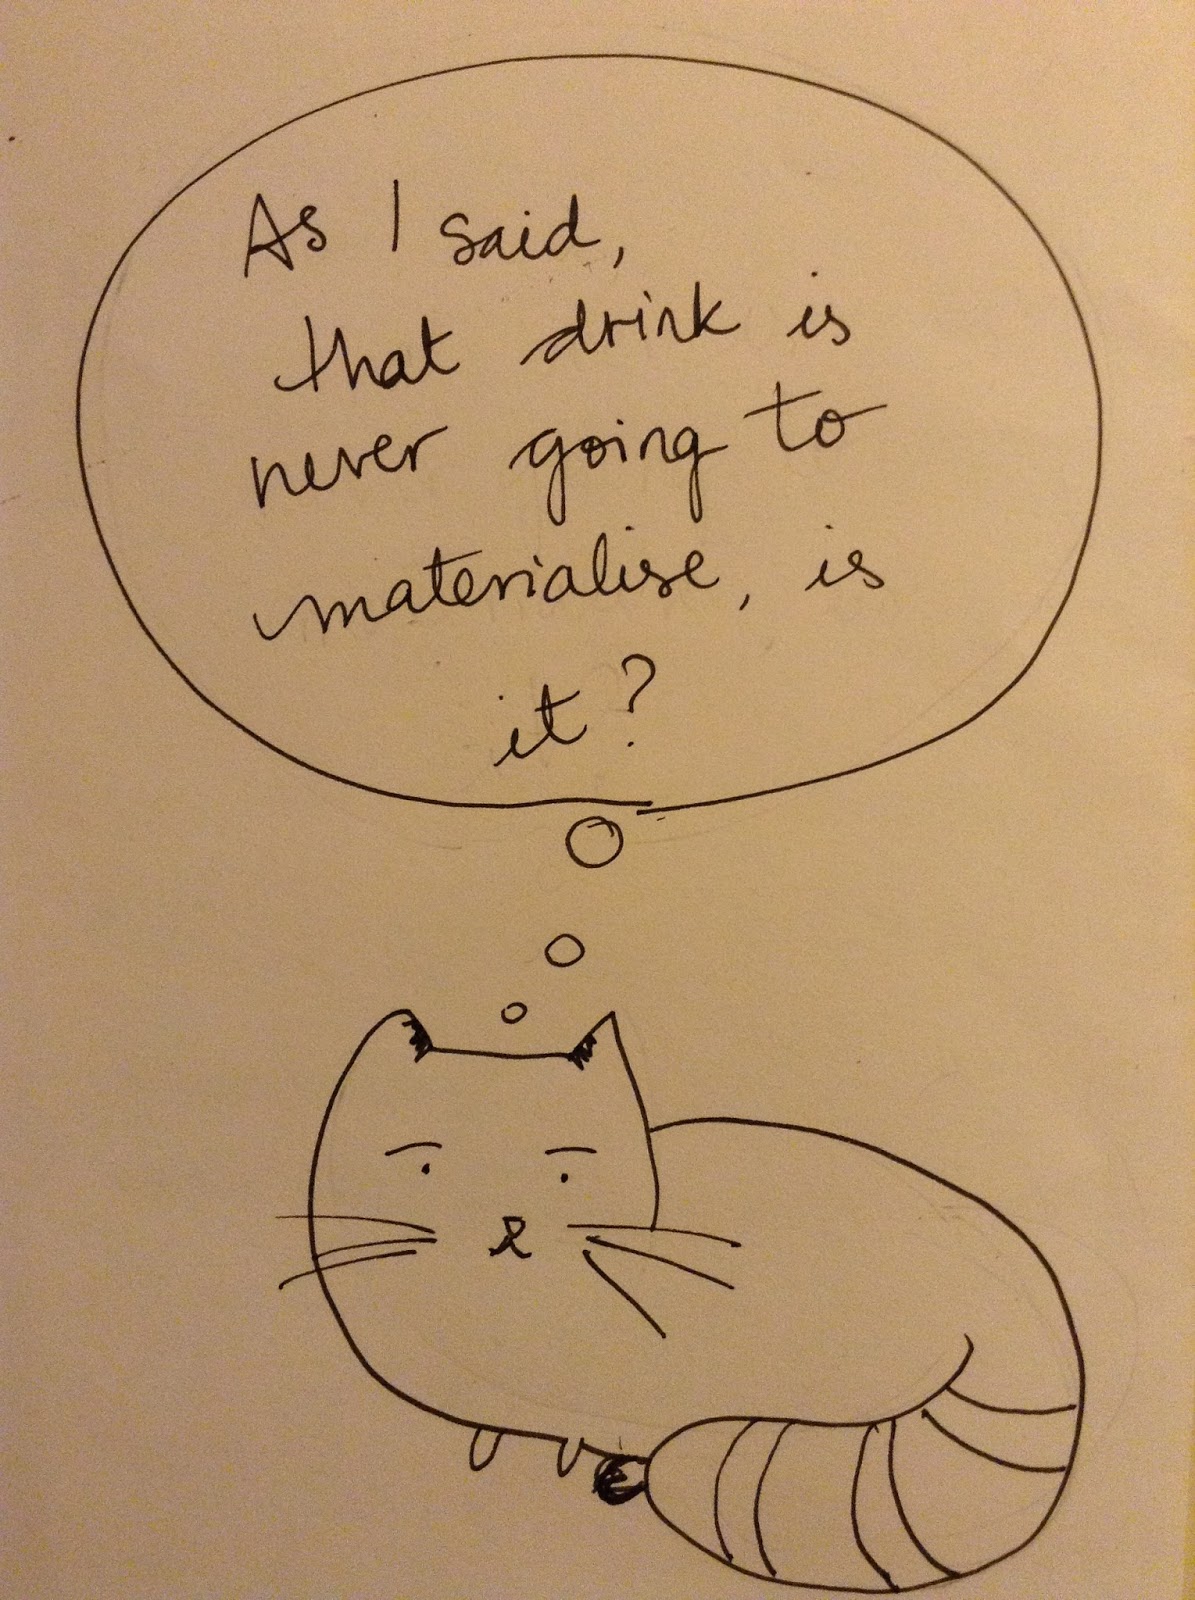 As I said,
that drink is
never going to
materialise, is
it?